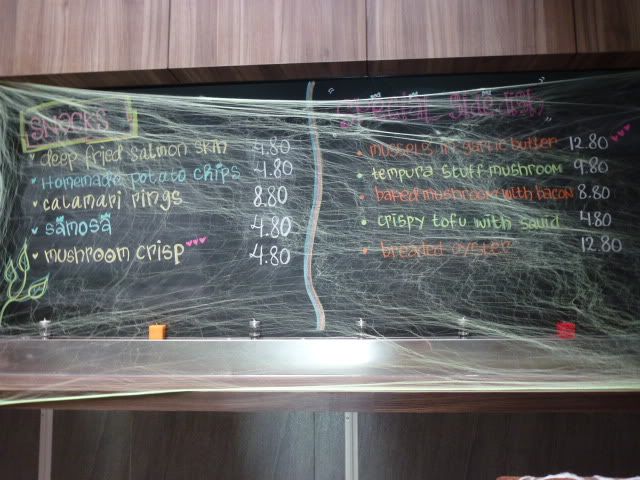 SNACKS
deep fried salmon skin 4.80
Homemade potato chips 4.80
calamari rings 8.80
samosa 4.80
mushroom crisp 4.80
mussels in garlic butter 12.80
tempura stuff mushroom 9.80
baked mushroom with bacon 8.80
crispy tofu with squid 4.80
breaded oyster 12.80